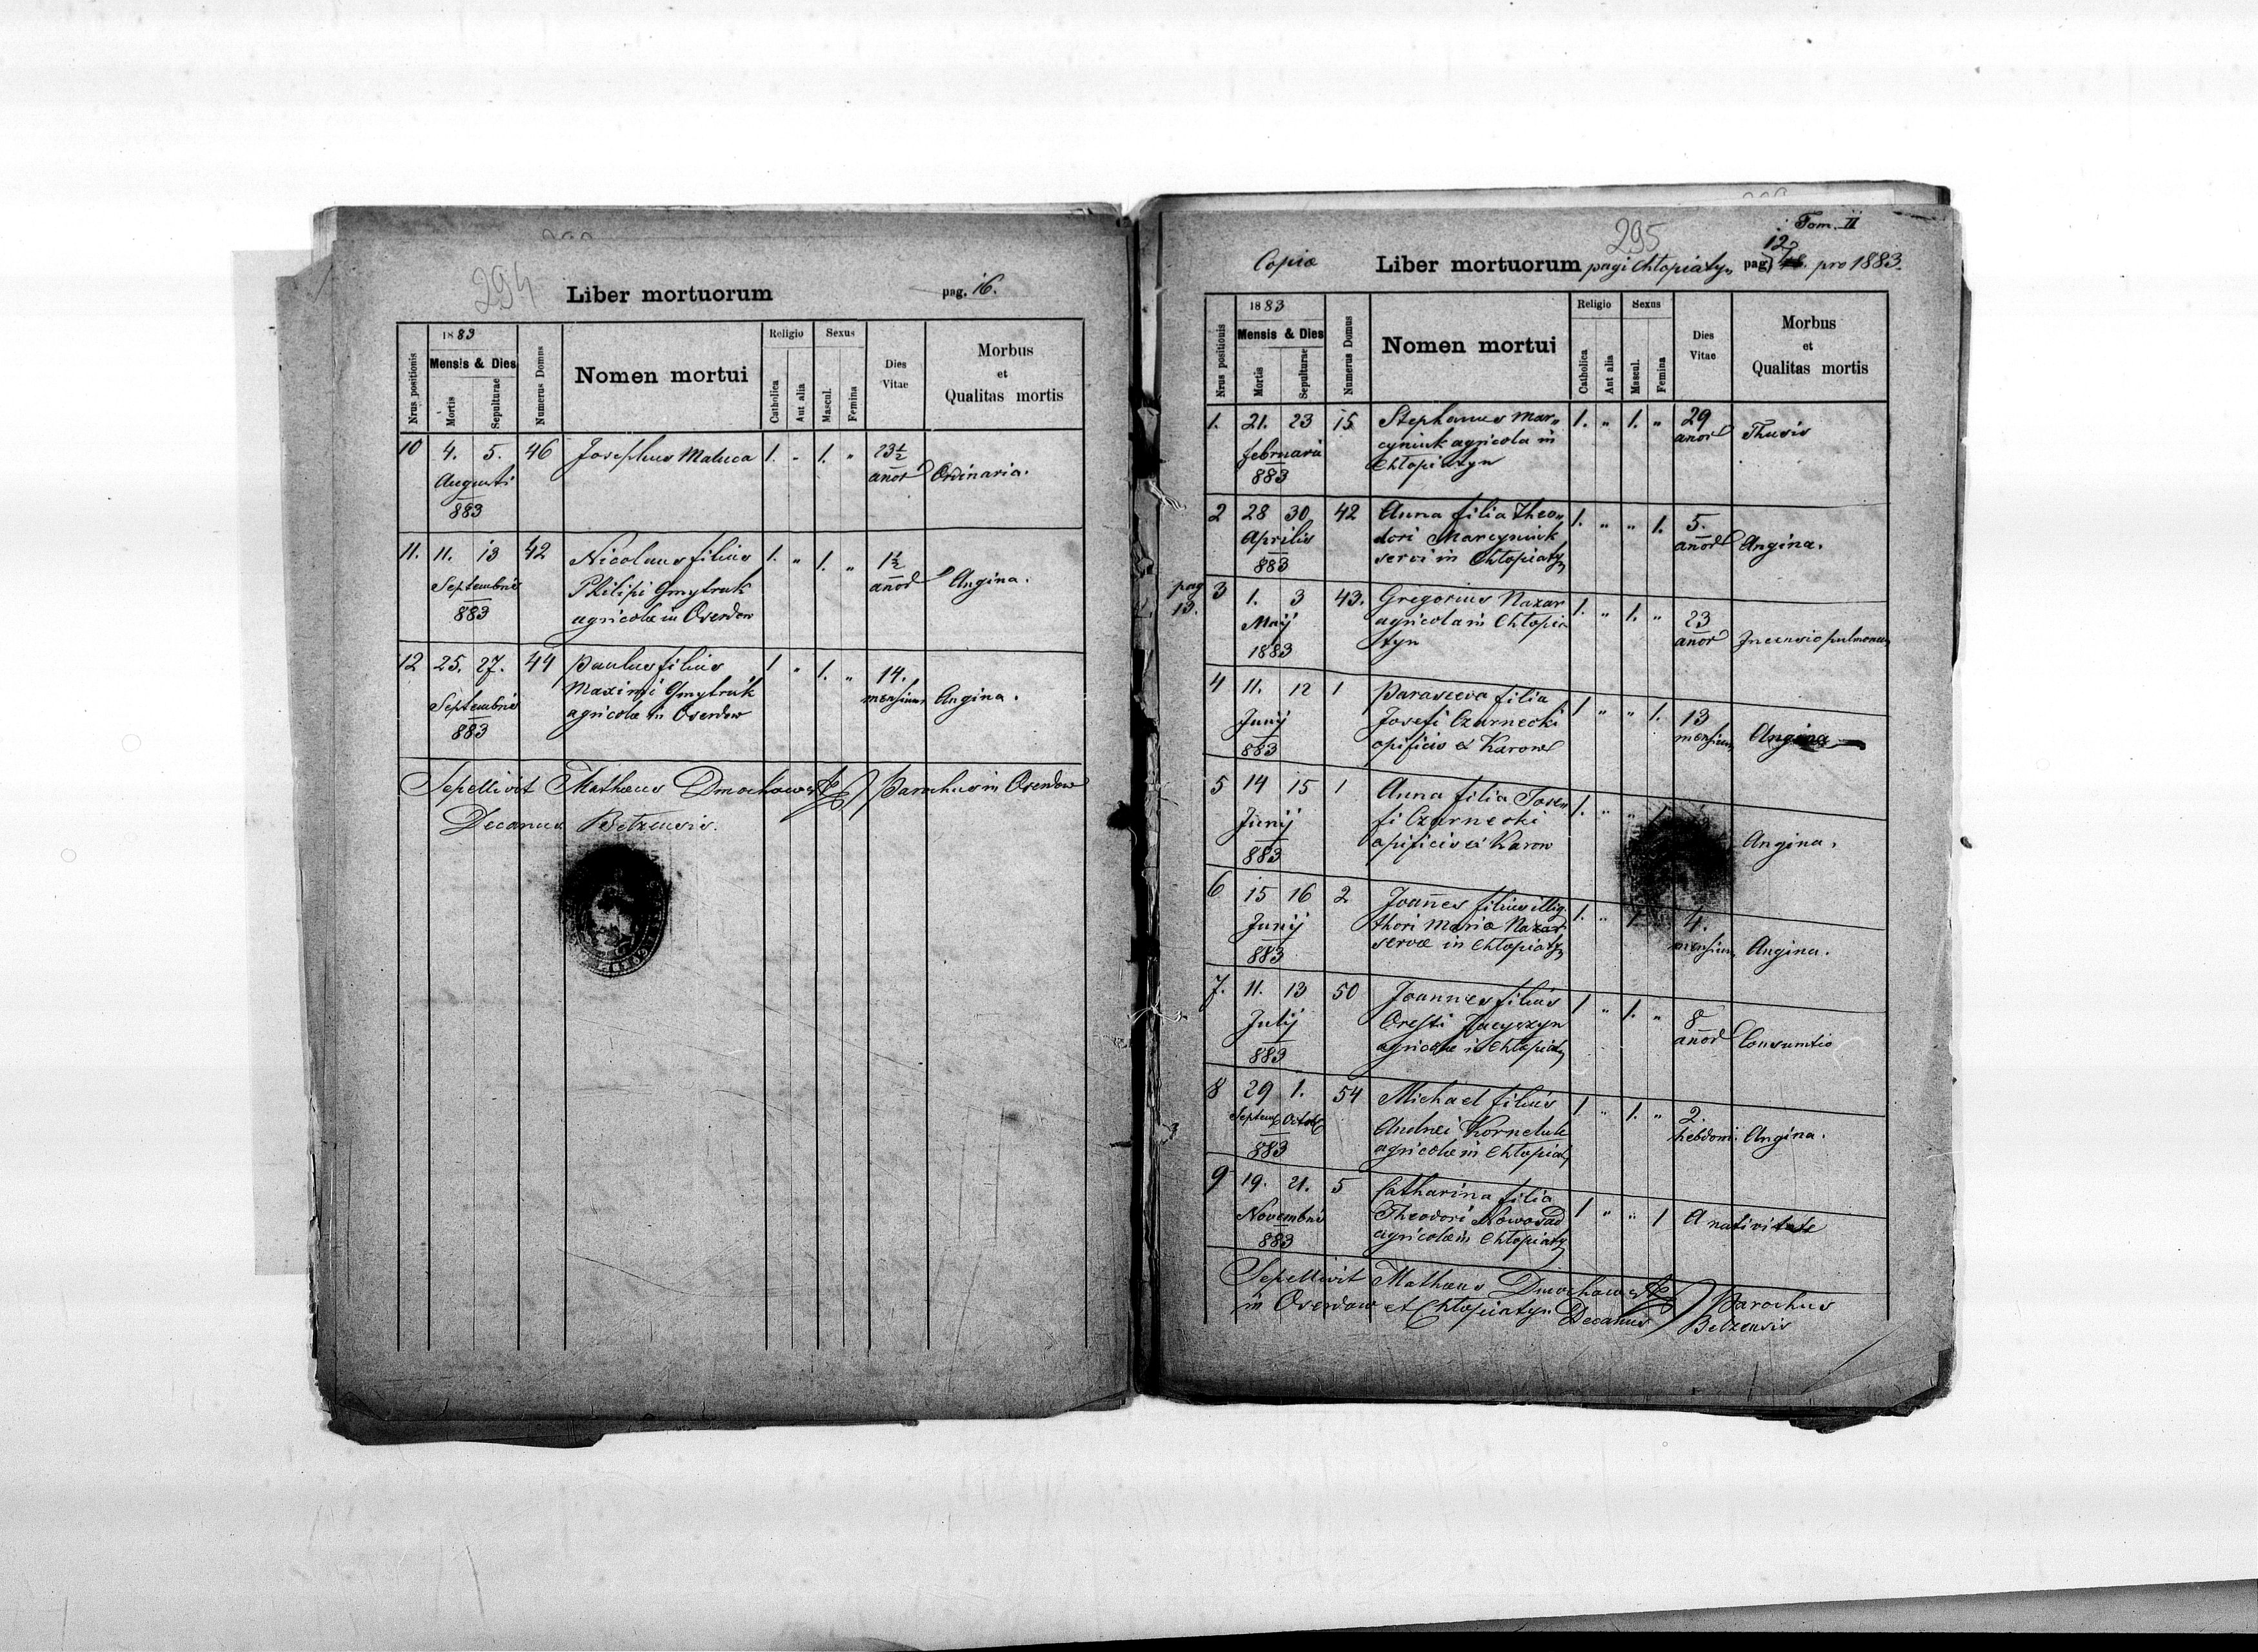 294
Liber mortuorum pag. 16.
1883
Nrus positionis
Mensis & Dies
Mortis
Sepulturae
Numerus Domus
Nomen mortui
Religio
Catholica
Aut alia
Sexus
Mascul.
Femina
Dies
Vitae
Morbus
et
Qualitas mortis
10 4. 5. 46 Josephus Maluca 1. " 1. " 23½
Augusti añor Ordinaria.
883
11. 11. 13 42 Nicolaus filius 1. " 1. " 1½
Septembris Philipi Gmytruk añor Angina.
883 agricolæ in Oserdow
12 25. 27. 44 Paulus filius 1 " 1. " 14.
Septembris Maximi Gmytruk mensium Angina.
883 agricolæ in Oserdow
Sepellivit Mathæus Parochus in Oserdow
Decanus Belzensis.
295
Tom. II
12
Copia Liber mortuorum pagi Chłopiatyn pag. pro 1883.
1883
Nrus positionis
Mensis & Dies
Mortis
Sepulturae
Numerus Domus
Nomen mortui
Religio
Catholica
Aut alia
Sexus
Mascul.
Femina
Dies
Vitae
Morbus
et
Qualitas mortis
1. 21. 23 15 Stephanus Mar„ 1. " 1. " 29
februarii cyniuk agricola in añor Thusis
883 Chłopiatyn
2 28 30 42 Anna filia Theo„ 1. " " 1. 5.
Aprilis dori Marcyniuk añor Angina.
883 servi in Chłopiatyn
pag
13.
3 1. 3 43. Gregorius Nazar 1. " 1. " 23
Maij agricola in Chłopia añor pulmonum
1883 tyn
4 11. 12 1 Parasceva filia 1 " " 1. 13
Junij Josefi Czarnecki mensium Angina
883 opificis ex Karow
5 14 15 1 Anna filia Jose„ 1. " "
Junij fi Czarnecki Angina.
883 opificis ex Karow
6 15 16 2 Joañes filius illig 1. " 1. 4.
Junij thori Mariæ Nazar mensium Angina.
883 servæ in Chłopiatyn
7. 11. 13 50 Joannes filius 1 " 1. " 8
Julij Oresti añor Consumtio
883 agricolæ in Chłopiatyn
8 29 1. 54 Michael filius 1 " 1. " 2.
Septem Octob Andrei Korneluk hebdom. Angina.
883 agricolæ in Chłopiatyn
9 19. 21. 5 Catharina filia 1 " " 1 A nativitate
Novembris Theodori Nowosad
883 agricolæ in Chłopiatyn
Sepellivit Mathæus Parochus
in Oserdow et Chłopiatyn Decanus Belzensis